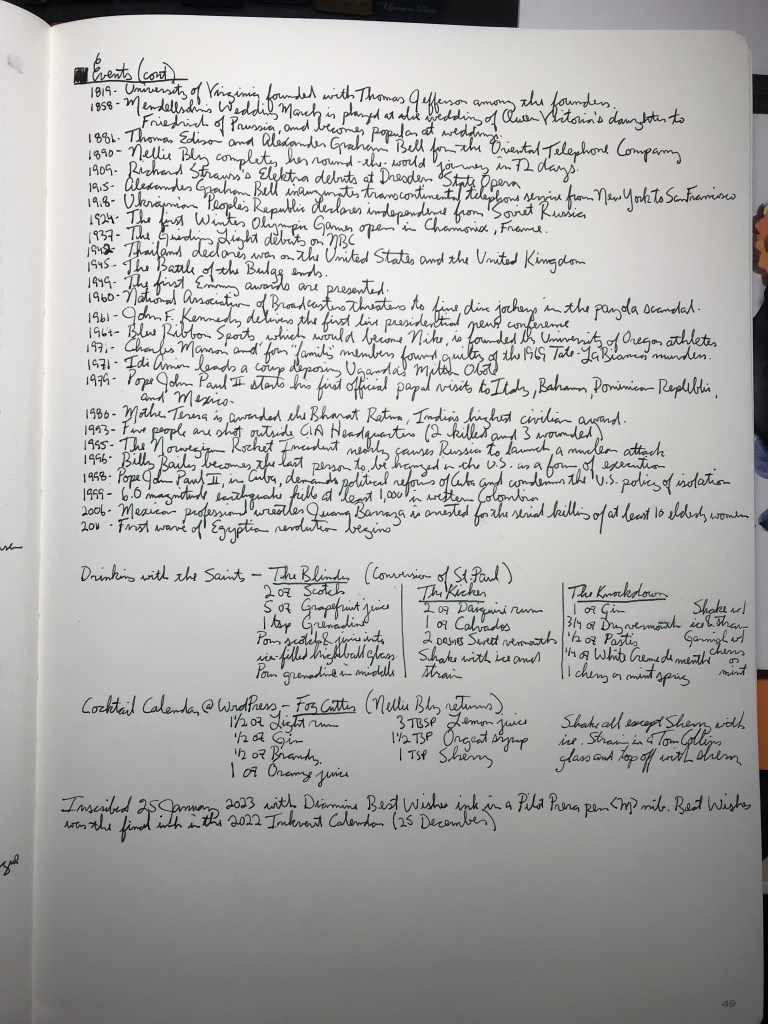 Events (cont)
1819- University of Virginia founded with Thomas Jefferson among the founders.
1858- Mendelssohn's Wedding March is played at the wedding of Queen Victoria's daughter to
Friedrich of Prussia, and becomes popular at weddings.
1881- Thomas Edison and Alexander Graham Bell form the Oriental Telephone Company
1890- Nellie Bly completes her round-the-world journey in 72 days.
1909- Richard Strauss's Elektra debuts at Dresden State Opera
1915- Alexander Graham Bell inaugurates transcontinental telephone service from New York to San Francisco
1918- Ukrainian People's Republic declares independence from Soviet Russia
1924- The first Winter Olympic Games open in Chamonix, France.
1937- The Guiding Light debuts on NBC
1942- Thailand declares war on the United States and the United Kingdom
1945- The Battle of the Bulge ends.
1949- The first Emmy awards are presented.
1960- National Association of Broadcasters threatens to fine disc jockeys in the payola scandal.
1961- John F. Kennedy delivers the first live presidential news conference
1964- Blue Ribbon Sports, which would become Nike, is founded by University of Oregon athletes
1971- Charles Manson and four "family" members found guilty of the 1969 Tate-LaBianca murders.
1971- Idi Amin leads a coup deposing Uganda's Milton Obote
1979- Pope John Paul II starts his first official papal visits to Italy, Bahamas, Dominican Republic,
and Mexico.
1980- Mother Teresa is awarded the Bharat Ratna, India's highest civilian award.
1993- Five people are shot outside CIA Headquarters (2 killed and 3 wounded)
1995- The Norwegian Rocket Incident nearly causes Russia to launch a nuclear attack
1996- Billy Bailey becomes the last person to be hanged in the U.S. as a form of execution
1998- Pope John Paul II, in Cuba, demands political reforms of Cuba and condemns the U.S. policy of isolation
1999- 6.0 magnitude earthquake kills at least 1,000 in western Colombia
2006- Mexican professional wrestler Juana Barraza is arrested for the serial killing of at least 10 elderly women
2011- First wave of Egyptian revolution begins
Drinking with the Saints - The Blinder (Conversion of St. Paul)
2 oz Scotch
5 oz Grapefruit juice
1 tsp Grenadine
Pour scotch & juice into
ice-filled highball glass
Pour grenadine in middle
The Kicker
2 oz Daiquiri rum
1 oz Calvados
2 DASHES Sweet vermouth
Shake with ice and
strain
The Knockdown
1 oz Gin
3/4 oz Dry vermouth
1/2 oz Pastis
1/4 oz White Creme de menthe
1 cherry or mint sprig
Shake w/
ice & strain
Garnish w/
cherry
or
mint
Cocktail Calendar @ WordPress - Fog Cutter (Nellie Bly returns)
1 1/2 oz Light rum
1/2 oz Gin
1/2 oz Brandy
1 oz Orange juice
3 TBSP Lemon juice
1 1/2 TSP Orgeat syrup
1 TSP Sherry
Shake all except Sherry with
ice. Strain in a Tom Collins
glass and top off with sherry
Inscribed 25 January 2023 with Diamine Best Wishes ink in a Pilot Prera pen <M> nib. Best Wishes
was the final ink in the 2022 Inkvent Calendar (25 December)
49